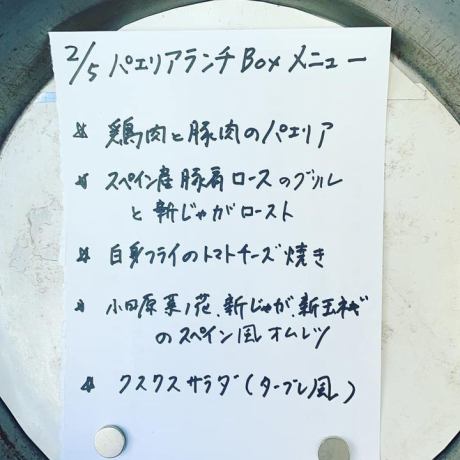 2/5 パエリアランチBoxメニュー
* 鶏肉と豚肉のパエリア
* スペイン産豚肩ロースのグリル
と新じゃがロースト
* 白身フライのトマトチーズ焼き
* 小田原菜ノ花、新じゃが、新玉ネギ
のスペイン風オムレツ
* クスクスサラダ(タブレ風)